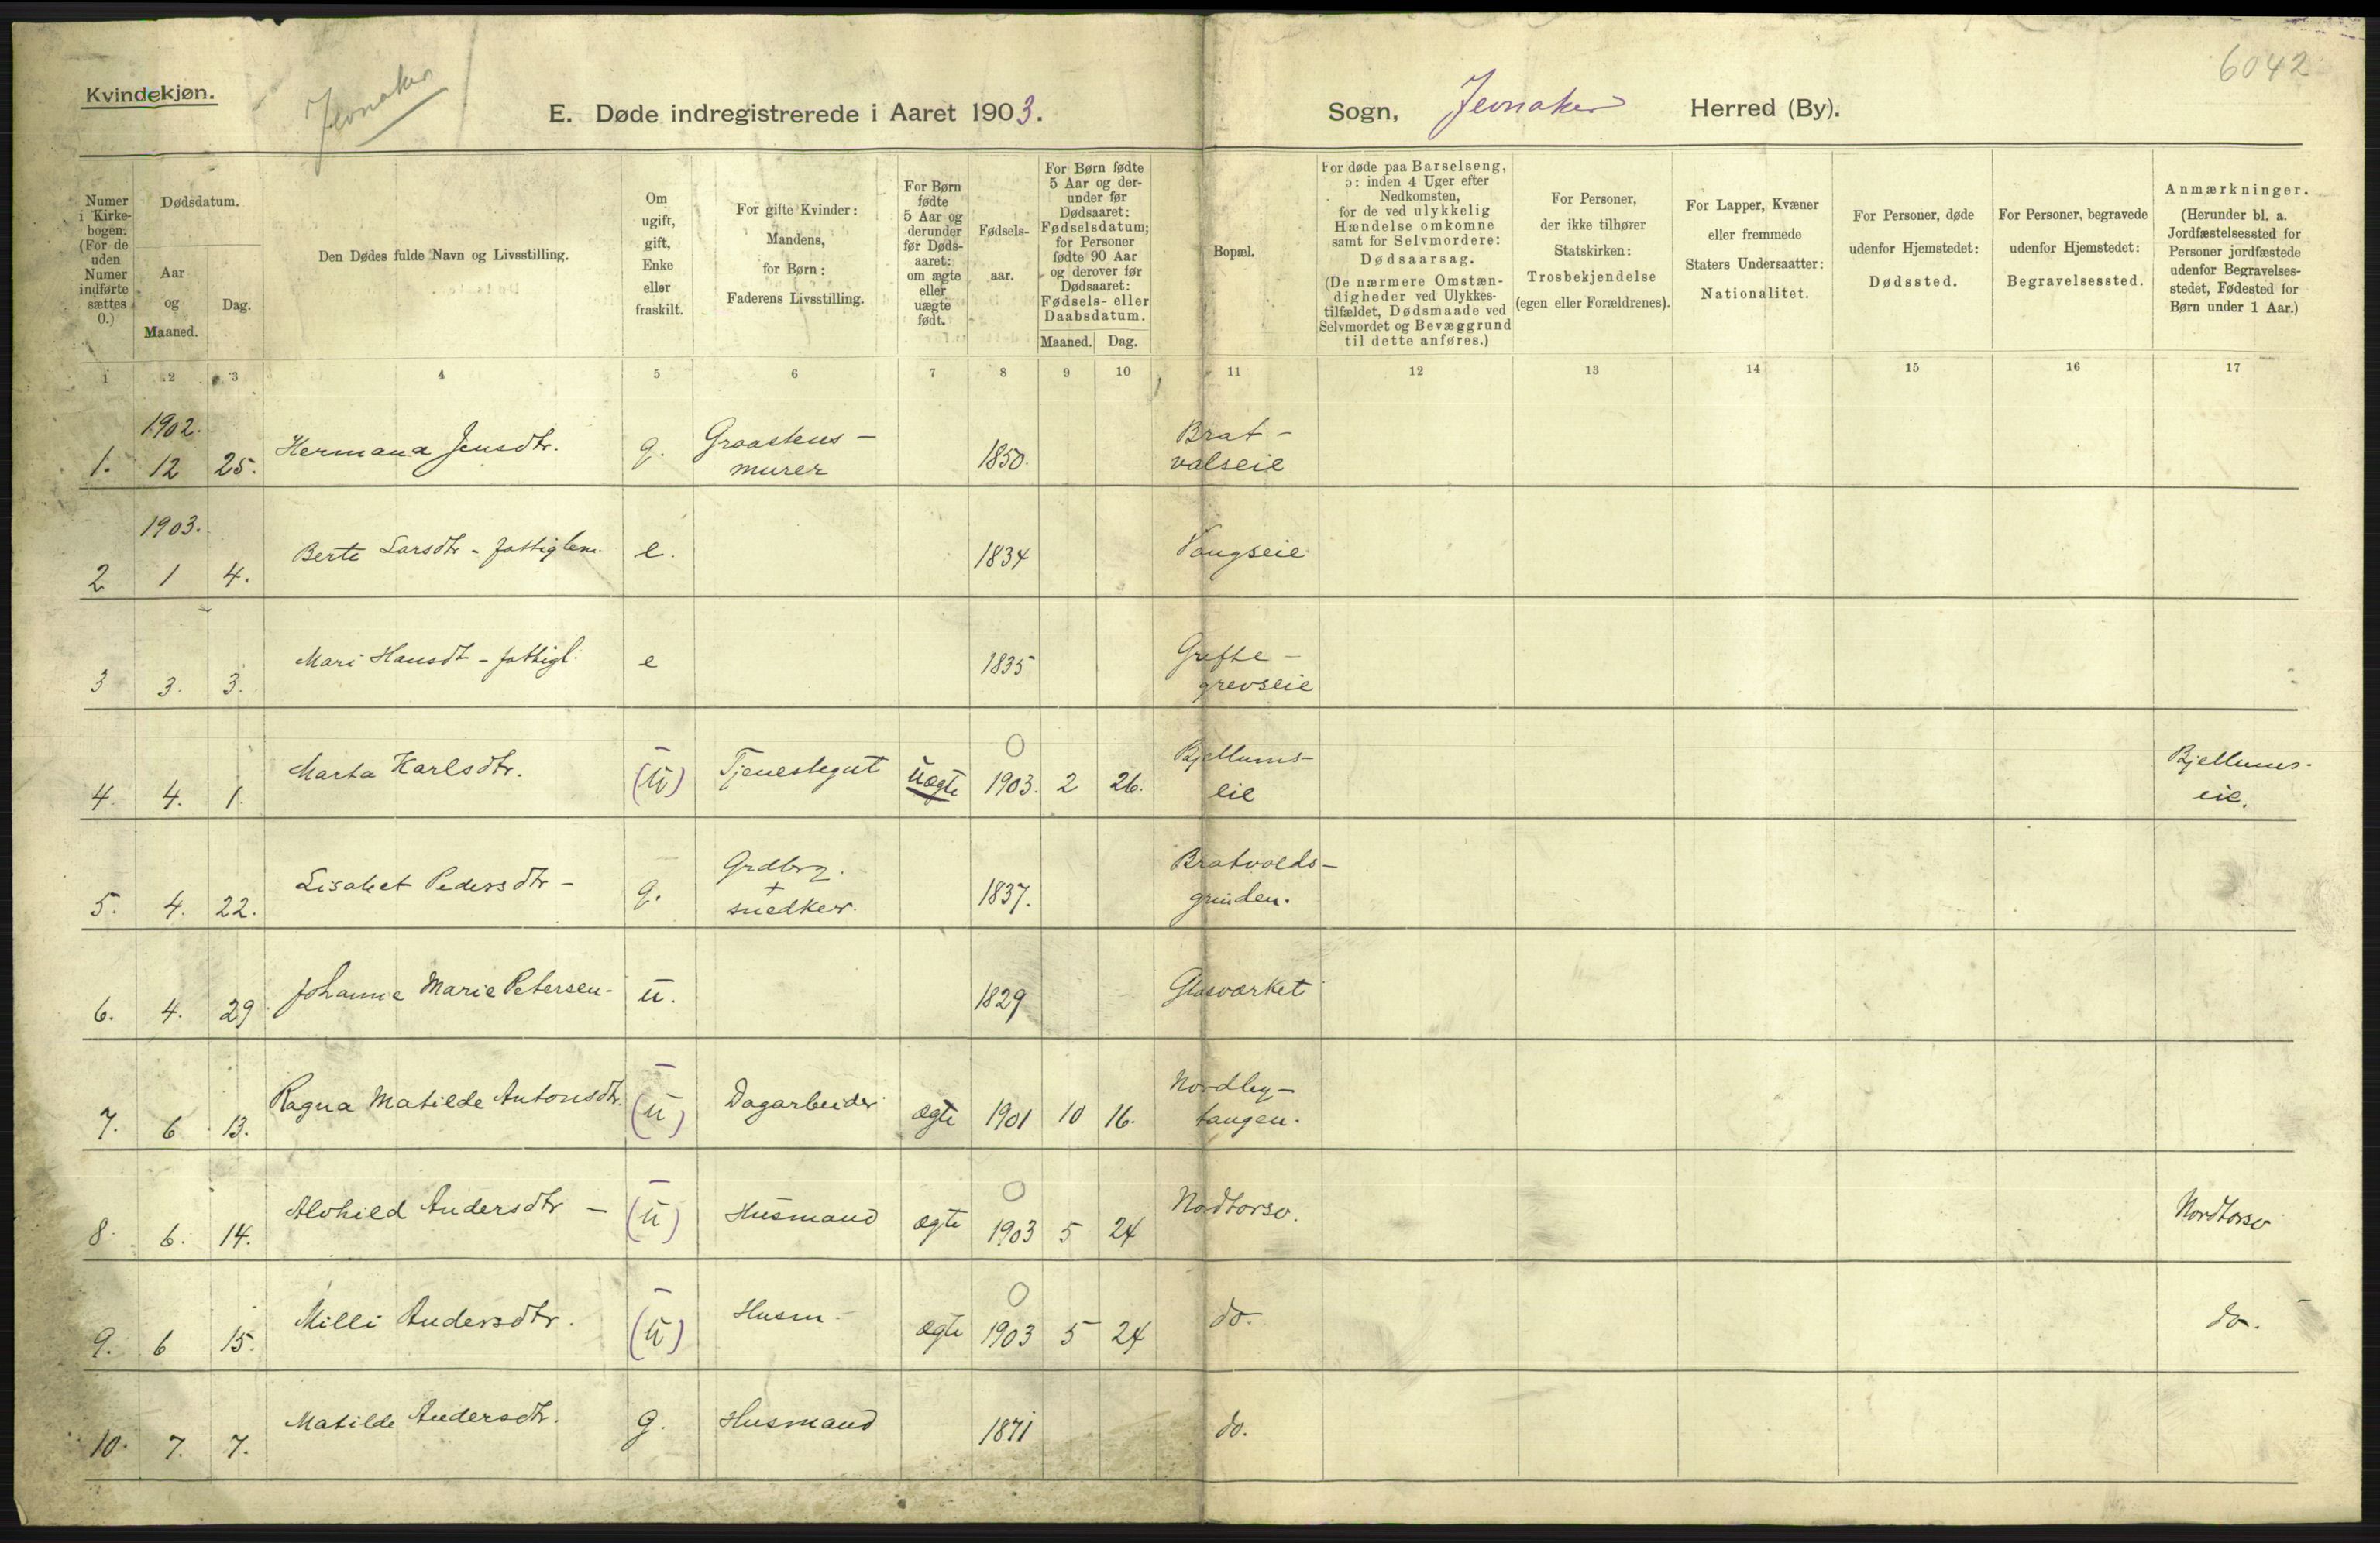 Kvindekjøn.
Jevnaker
6042
E. Døde indregistrerede i Aaret 1903. Sogn, Jevnaker Herred (By).
Numer i Kirkebogen. (For de uden Numer indførte sættes 0.)
Dødsdatum.
Aar og Maaned.
Dag.
Den Dødes fulde Navn og Livsstilling.
Om ugift, gift, Enke eller fraskilt.
For gifte Kvinder: Mandens, for Børn: Faderens Livsstilling.
For Børn fødte 5 Aar og derunder før Dødsaaret: om ægte eller uægte født.
Fødselsaar.
For Børn fødte 5 Aar og derunder før Dødsaaret: Fødselsdatum; for Personer fødte 90 Aar og derover før Dødsaaret: Fødsels- eller Daabsdatum.
Maaned. Dag.
Bopæl.
For døde paa Barselseng, ɔ: inden 4 Uger efter Nedkomsten, for de ved ulykkelig Hændelse omkomne samt for Selvmordere: Dødsaarsag.
(De nærmere Omstændigheder ved Ulykkestilfældet, Dødsmaade ved Selvmordet og Bevæggrund til dette anføres.)
For Personer, der ikke tilhører Statskirken: Trosbekjendelse (egen eller Forældrenes).
For Lapper, Kvæner eller fremmede Staters Undersaatter: Nationalitet.
For Personer, døde udenfor Hjemstedet: Dødssted.
For Personer, begravede udenfor Hjemstedet: Begravelsessted.
Anmærkninger.
(Herunder bl. a. Jordfæstelsessted for Personer jordfæstede udenfor Begravelsesstedet, Fødested for Børn under 1 Aar.)
1 2 3 4 5 6 7 8 9 10 11 12 13 14 15 16 17
1902.
1. 12 25. Hermana Jensdtr. g. Graastens-murer 1850. Brat-valseie
1903.
2 1 4. Berte Larsdtr - fattiglem. e. 1834 Vangseie
3 3. 3. Mari Hansdt - fattigl. e 1835 Grefte-grevseie
4. 4. 1. Marta Karlsdtr. (u) Tjenestegut uægte 1903. 2 26. Bjellums-eie Bjellums-eie.
5. 4. 22. Lisabet Pedersdtr - g. Grdbrg. + snedker. 1837. Bratvolds-grinden.
6. 4. 29 Johanne Marie Petersen - u. 1829 Glasværket
7. 6 13. Ragna Matilde Antonsdtr. (u) Dagarbeider ægte 1901 10 16. Nordby-tangen.
8. 6. 14. Alvhild Andersdtr - (u) Husmand ægte 1903 5 24 Nordtorso. Nordtorso
9. 6 15. Milli Andersdtr. (u) Husm - ægte 1903 5 24 do. do.
10. 7. 7. Matilde Andersdtr. g. Husmand 1871 do.